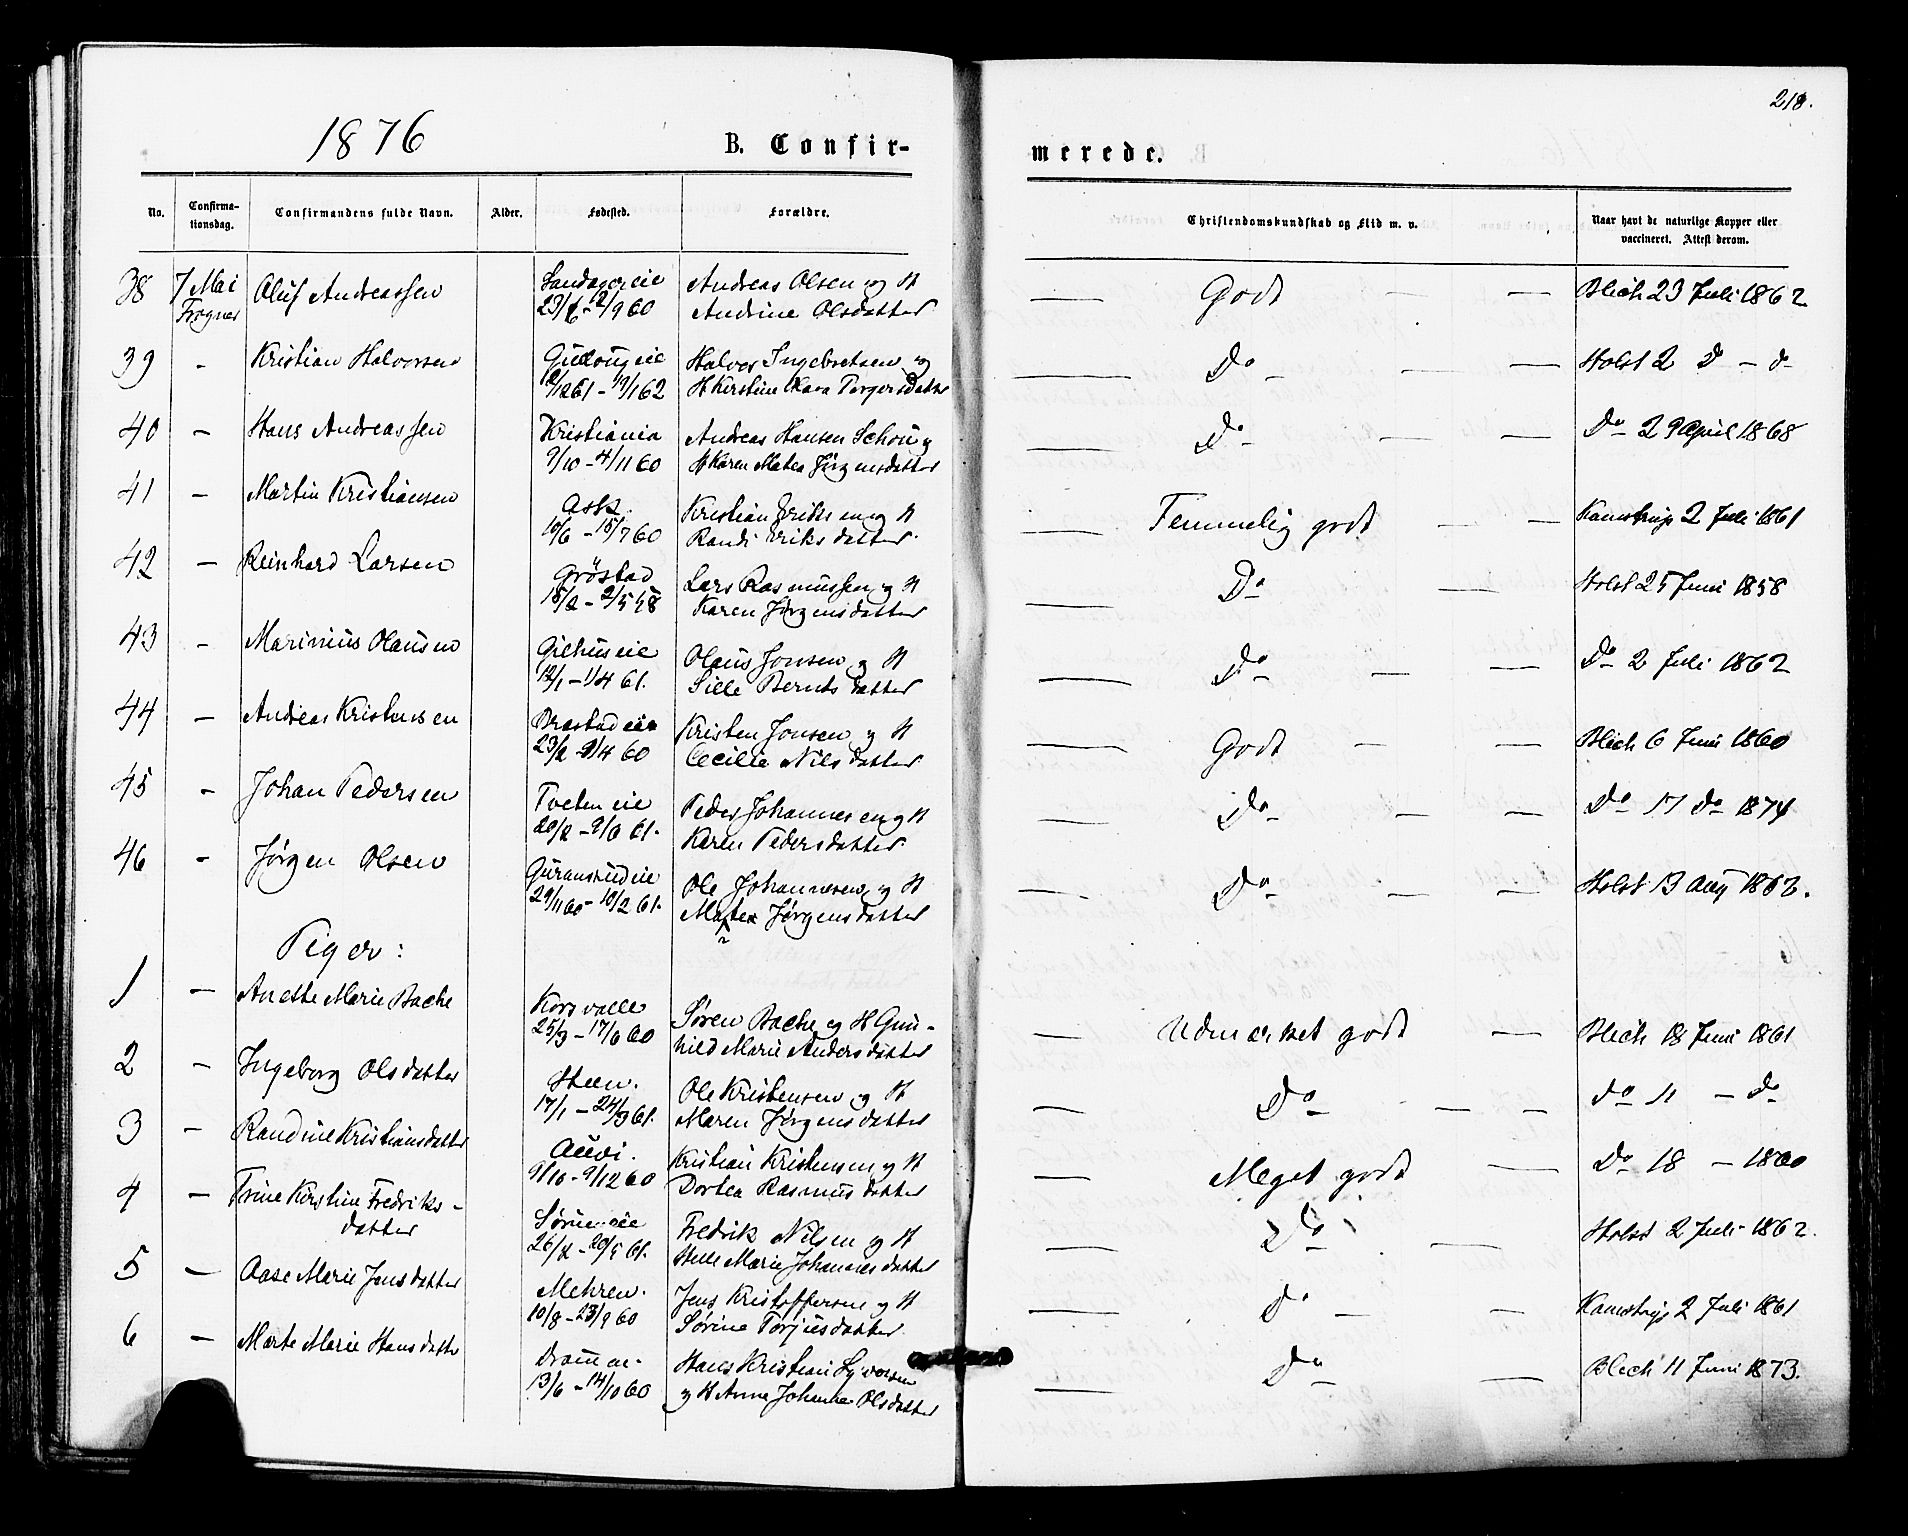 218.
1876 B. Confir- merede.
No. Confirma-tionsdag. Confirmandens fulde Navn. Alder. Fødested. Forældre. Christendomskundskab og Flid m. v. Naar havt de naturlige Kopper eller vaccineret. Attest derom.
38 7 Mai Oluf Andreassen Andreas Olsen og H Godt Blich 23 Juli 1862
Frogner Andrine Olsdatter
39 - Kristian Halvorsen Halvor Ingebretsen og Do Holst 2 Do - do
12/12 61 - 19/1 62 H Kirstine Torgersdatter
40 - Hans Andreassen Kristiania Andreas Hansen Schou og Do Do 29 April 1868
9/10 - 4/11 60 H Karen Matea Jørgensdatter
41 - Martin Kristiansen Ask. Kristian Eriksen og H Temmelig godt Kamstrup 2 Juli 1861
10/6 - 15/7 60 Randi Eriksdatter
42 - Reinhard Larsen Grøstad Lars Rasmussen og H Do Holst 25 Juni 1858
Karen Jørgensdatter
43 - Marinius Olausen Gilhuseie Olaus Jonsen og H Do Do 2 Juli 1862
12/1 - 1/4 61. Sille Berntsdatter
44 - Andreas Kristensen Kristen Jonsen og H Godt Blich 6 Juni 1860
Cecilie Nilsdatter
45 - Johan Pedersen Tveten eie Peder Johannesen og H Do Do 17 Do 1874
Karen Pedersdatter
46 - Jørgen Olsen Guranrudeie Ole Johannesen og H Do Holst 13 Aug 1862.
29/11 60 - 10/2 61. Matea Jørgensdatter
Piger:
1 - Anette Marie Bache Korsvalle Søren Bache og H Gun- Udmærket godt Blich 18 Juni 1861
25/3 - 17/6 60 hild Marie Andersdatter
2 - Ingeborg Olsdatter Steen. Ole Kristensen og H Do Do 11 - Do
17/1 - 24/3 61. Maren Jørgensdatter
3 - Randine Kristiansdatter Auvi. Kristian Kristensen og H Meget godt Do 18 - 1860
9/10 - 9/12 60 Dortea Rasmusdatter
4 - Trine Kirstine Fredriks- Fredrik Nilsen og H Do Holst 2 Juli 1862.
datter Helle Marie Johannesdatter
5 - Aase Marie Jensdatter Mehren. Jens Kristoffersen og H Do Kamstrup 2 Juli 1861
10/8 - 23/9 60 Sørine Torjusdatter
6 - Marte Marie Hansdatter Hans Kristian Syversen Do Blich 11 Juni 1873.
13/6 - 14/10 60 og H Anne Johanne Olsdatter